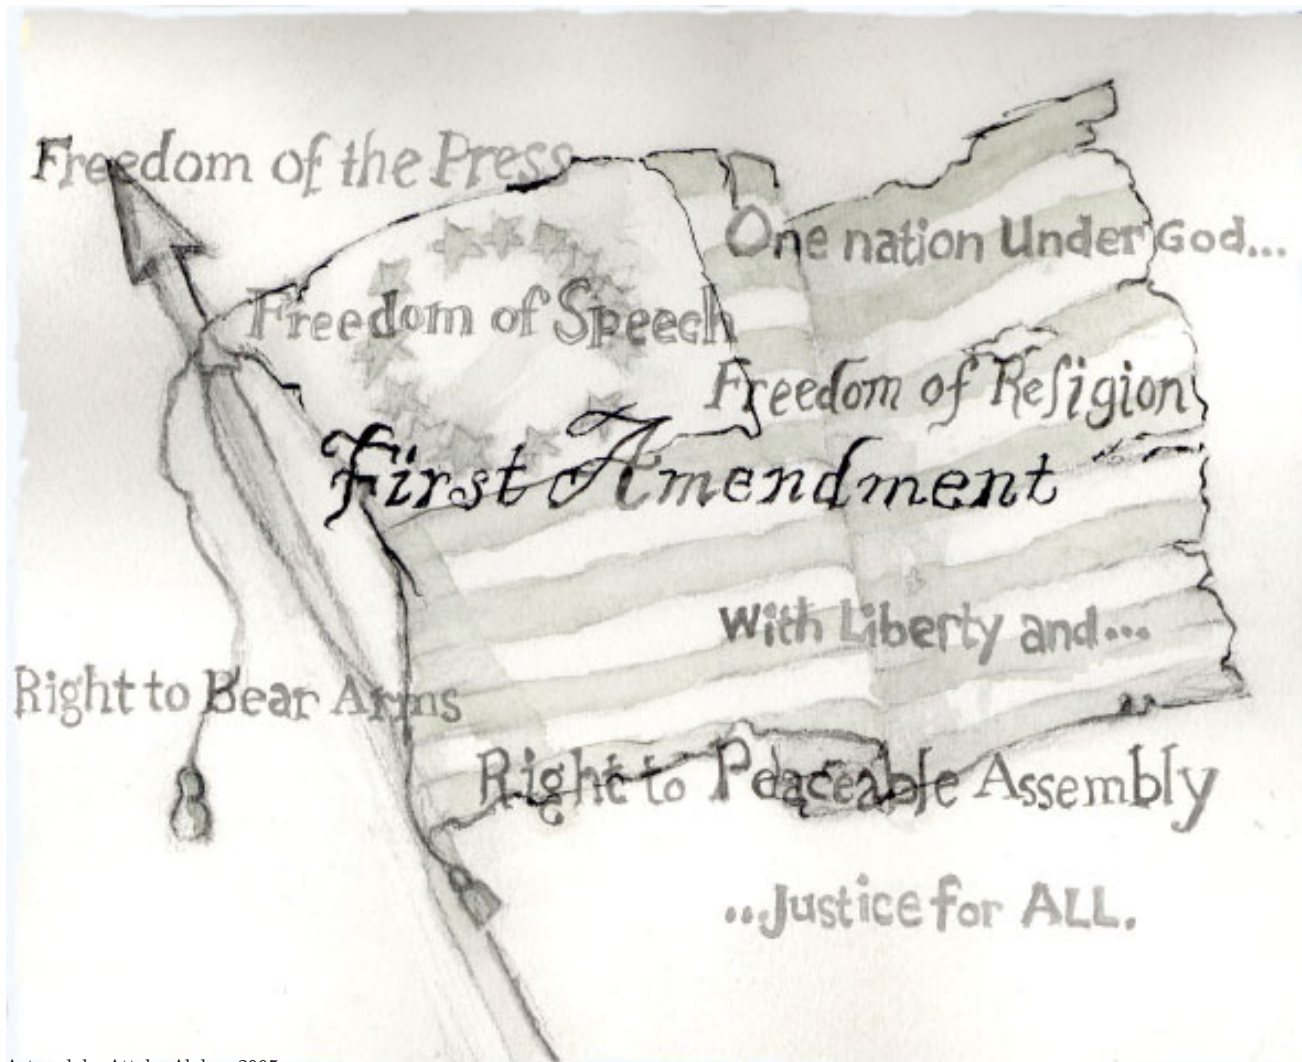 Freedom of the Press
One nation Under God...
Freedom of Speech
Freedom of Religion
First Amendment
With Liberty and...
Right to Bear Arms
Right to Peaceable Assembly
...Justice for ALL.